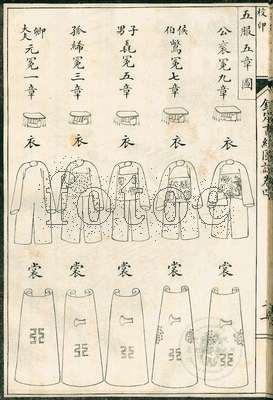 五服五章圖
公袞冕九章
侯伯鷩冕七章
子男毳冕五章
孤絺冕三章
卿大夫元冕一章
衣
衣
衣
衣
衣
裳
裳
裳
裳
裳
fotoe